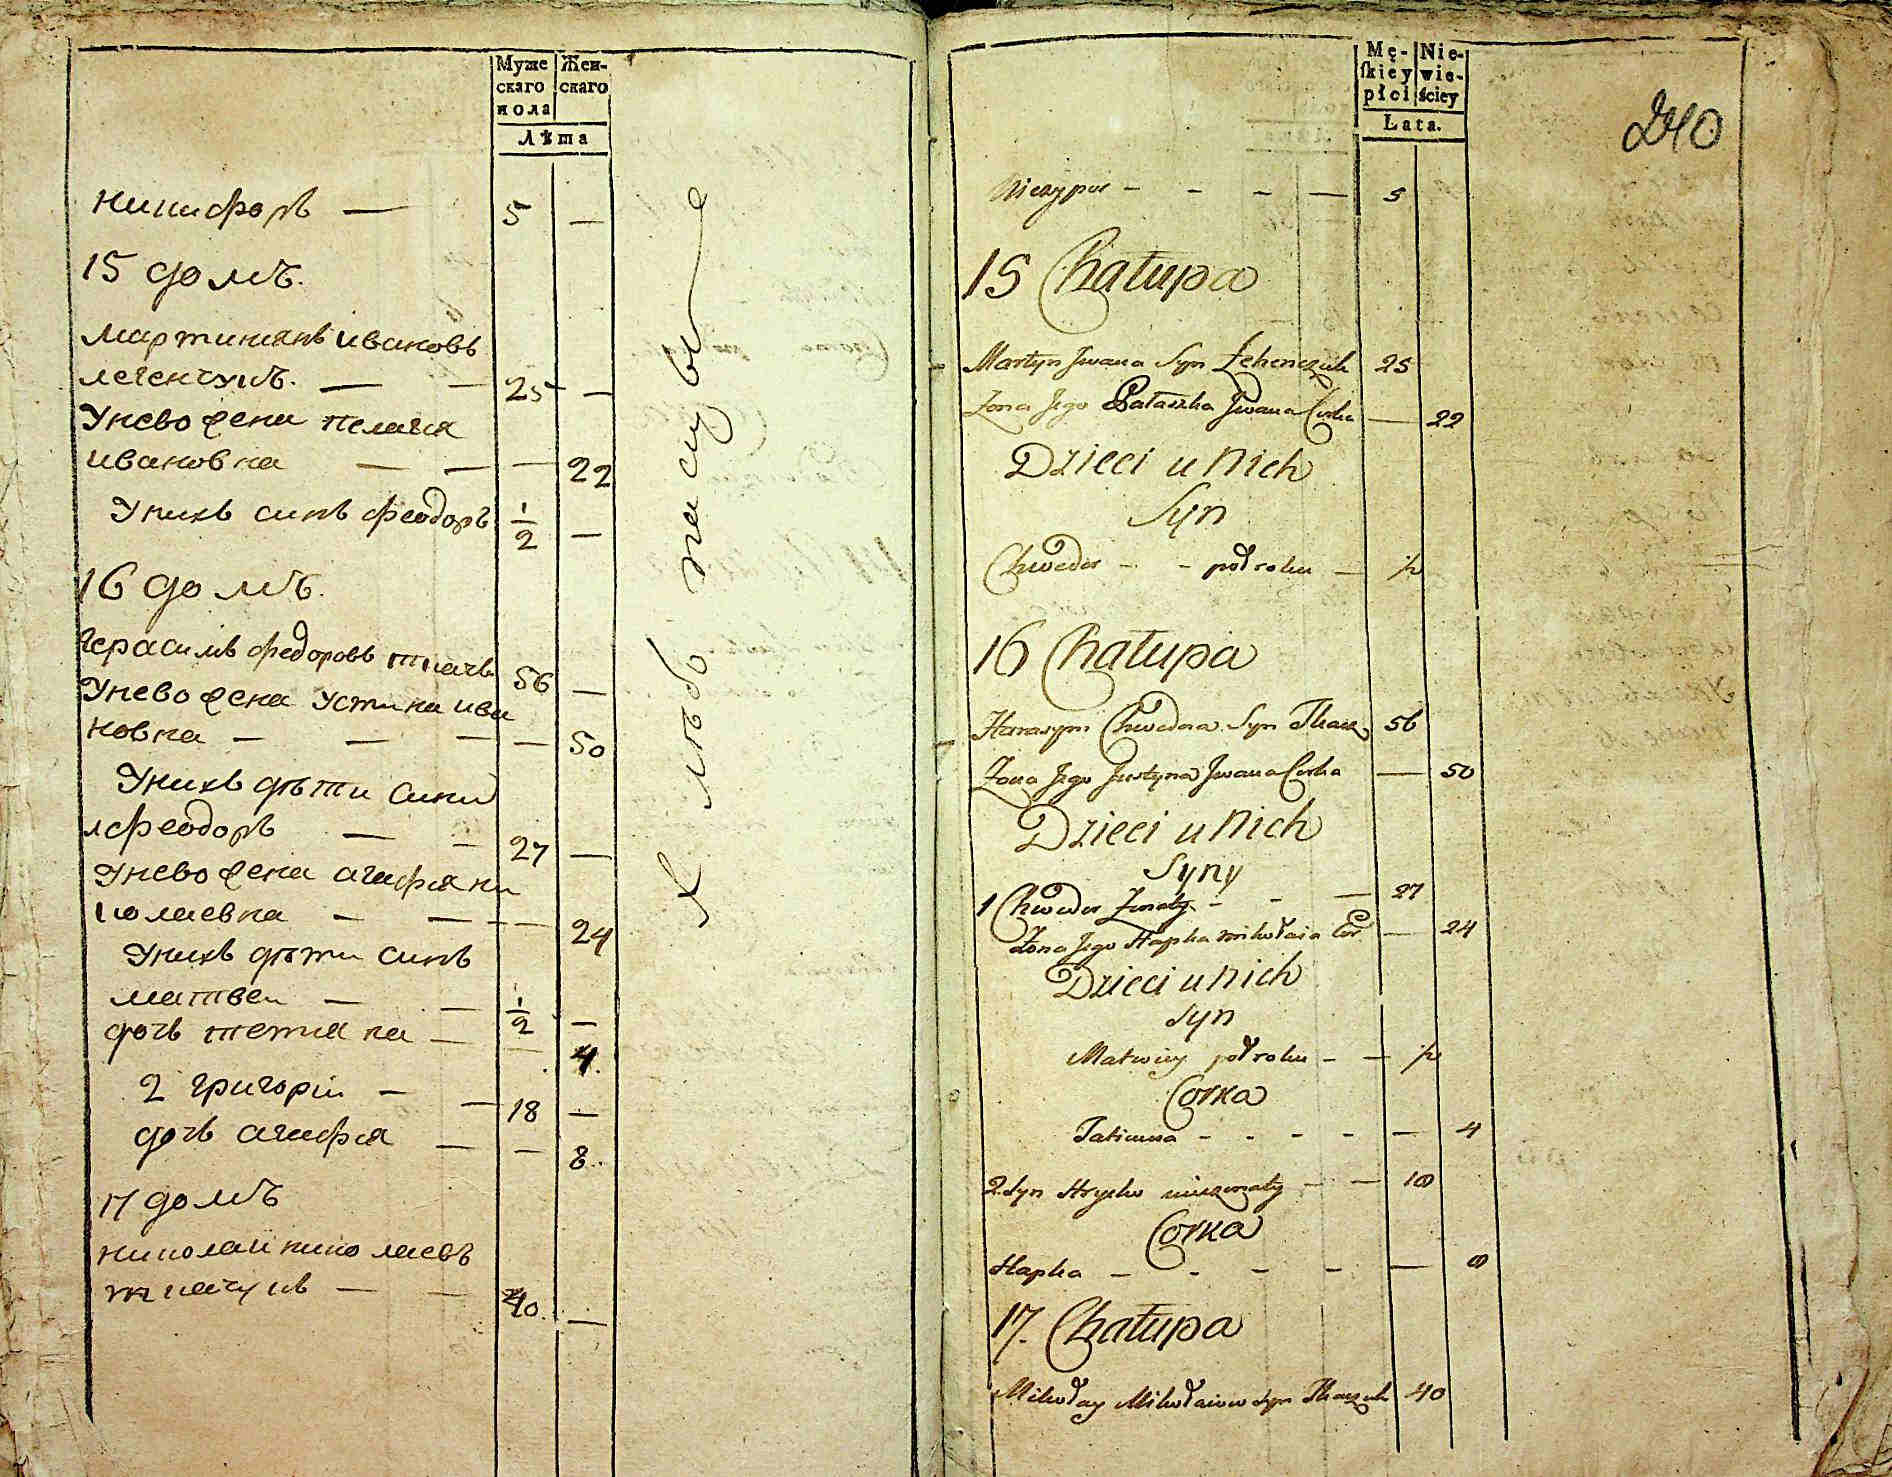 Муже
скаго
пола
Жен-
скаго
Лѣта
никифоръ — 5 —
15 домъ.
мартинианъ ивановъ
легенчукъ. — — 25 —
Унево жена пелагия
ивановна — — — 22
Унихъ синъ феодоръ 1/2 —
16 домъ.
герасимъ федоровъ ткачъ 56 —
Унево жена устина ива
новна — — — — 50
Унихъ дѣти сини
1 феодоръ — — 27 —
Унево жена агафия ни
колаевна — — — 24
Унихъ дѣти синъ
матвеи — — 1/2 —
дочь тетиана — — 4.
2 григории — — 18 —
дочь агафия — — 8.
17 домъ
николаи николаевъ
ткачукъ — — 40. —
К любо
Mę-
skiey
płci
Nie-
wie-
ściey
Lata.
240
Niczypor - - - — 5
15 Chałupa
Martyn Jwana Syn Lehenczuk 25
Zona Jego Pałaszka Jwana Corka — 22
Dzieci u Nich
Syn
Chwedor - - poł roku — 1/2
16 Chałupa
Harasym Chwedora Syn Tkacz 56
Zona Jego Justyna Jwana Corka — 50
Dzieci u Nich
Syny
1 Chwedor Zonaty - - — 27
Zona Jego Hapka Mikołaia Cor — 24
Dzieci u Nich
Syn
Matwiey poł roku - — 1/2
Corka
Tatianna - - - - — 4
2. Syn Hryćko niezonaty - — 18
Corka
Hapka — - - - — 8
17. Chałupa
Mikołay Mikołaiow Syn Tkaczuk 40